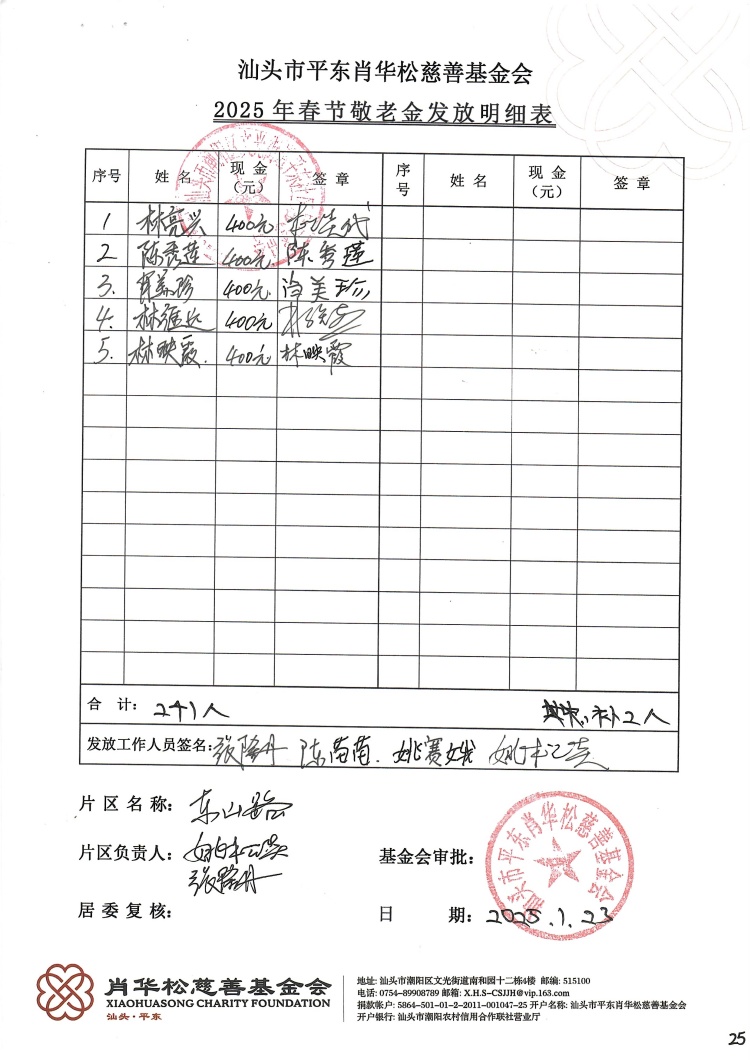 汕头市平东肖华松慈善基金会
2025年春节敬老金发放明细表
序号 姓名 现金（元） 签章 序号 姓名 现金（元） 签章
1 林亮兴 400元
2 陈秀莲 400元 陈秀莲
3. 肖美珍 400元 肖美珍
4. 400元
5. 林映霞. 400元 林映霞
合计: 241人 2人
发放工作人员签名: 陈苗苗. 姚赛娥
片区名称: 东山
片区负责人:
基金会审批:
汕头市平东肖华松慈善基金会
居委复核:
日期: 2025.1.23
肖华松慈善基金会
XIAOHUASONG CHARITY FOUNDATION
汕头·平东
地址: 汕头市潮阳区文光街道南和园十二栋4楼 邮编: 515100
电话: 0754-89908789 邮箱: X.H.S-CSJJH@vip.163.com
捐款帐户: 5864-501-01-2-2011-001047-25 开户名称: 汕头市平东肖华松慈善基金会
开户银行: 汕头市潮阳农村信用合作联社营业厅
25